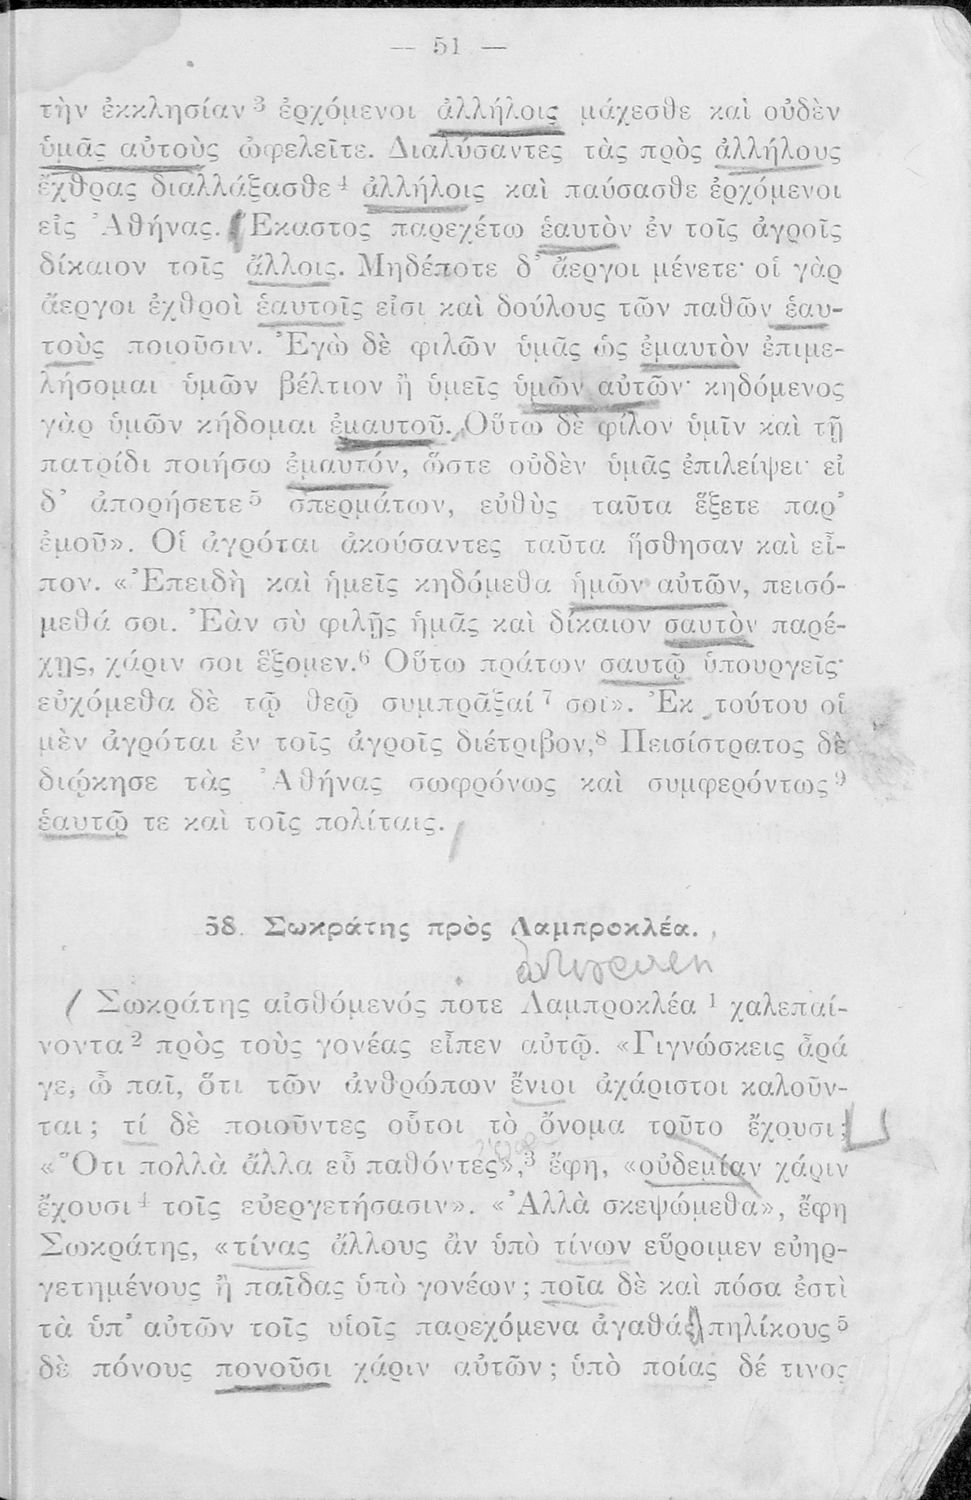 — 51 —
τὴν ἐκκλησίαν ³ ἐρχόμενοι ἀλλήλοις μάχεσθε καὶ οὐδὲν
ὑμᾶς αὐτοὺς ὠφελεῖτε. Διαλύσαντες τὰς πρὸς ἀλλήλους
ἔχθρας διαλλάξασθε ⁴ ἀλλήλοις καὶ παύσασθε ἐρχόμενοι
εἰς Ἀθήνας. Ἕκαστος παρεχέτω ἑαυτὸν ἐν τοῖς ἀγροῖς
δίκαιον τοῖς ἄλλοις. Μηδέποτε δ᾽ ἄεργοι μένετε· οἱ γὰρ
ἄεργοι ἐχθροὶ ἑαυτοῖς εἰσι καὶ δούλους τῶν παθῶν ἑαυ-
τοὺς ποιοῦσιν. Ἐγὼ δὲ φιλῶν ὑμᾶς ὡς ἐμαυτὸν ἐπιμε-
λήσομαι ὑμῶν βέλτιον ἢ ὑμεῖς ὑμῶν αὐτῶν· κηδόμενος
γὰρ ὑμῶν κήδομαι ἐμαυτοῦ. Οὕτω δὲ φίλον ὑμῖν καὶ τῇ
πατρίδι ποιήσω ἐμαυτόν, ὥστε οὐδὲν ὑμᾶς ἐπιλείψει· εἰ
δ᾽ ἀπορήσετε ⁵ σπερμάτων, εὐθὺς ταῦτα ἕξετε παρ᾽
ἐμοῦ». Οἱ ἀγρόται ἀκούσαντες ταῦτα ἥσθησαν καὶ εἶ-
πον. «Ἐπειδὴ καὶ ἡμεῖς κηδόμεθα ἡμῶν αὐτῶν, πεισό-
μεθά σοι. Ἐὰν σὺ φιλῇς ἡμᾶς καὶ δίκαιον σαυτὸν παρέ-
χῃς, χάριν σοι ἕξομεν.⁶ Οὕτω πράτων σαυτῷ ὑπουργεῖς·
εὐχόμεθα δὲ τῷ θεῷ συμπρᾶξαί ⁷ σοι». Ἐκ τούτου οἱ
μὲν ἀγρόται ἐν τοῖς ἀγροῖς διέτριβον,⁸ Πεισίστρατος δὲ
διῴκησε τὰς Ἀθήνας σωφρόνως καὶ συμφερόντως ⁹
ἑαυτῷ τε καὶ τοῖς πολίταις.
58. Σωκράτης πρὸς Λαμπροκλέα.
Σωκράτης αἰσθόμενός ποτε Λαμπροκλέα ¹ χαλεπαί-
νοντα ² πρὸς τοὺς γονέας εἶπεν αὐτῷ. «Γιγνώσκεις ἆρά
γε, ὦ παῖ, ὅτι τῶν ἀνθρώπων ἔνιοι ἀχάριστοι καλοῦν-
ται; τί δὲ ποιοῦντες οὗτοι τὸ ὄνομα τοῦτο ἔχουσι;
«Ὅτι πολλὰ ἄλλα εὖ παθόντες»,³ ἔφη, «οὐδεμίαν χάριν
ἔχουσι ⁴ τοῖς εὐεργετήσασιν». «Ἀλλὰ σκεψώμεθα», ἔφη
Σωκράτης, «τίνας ἄλλους ἂν ὑπὸ τίνων εὕροιμεν εὐηρ-
γετημένους ἢ παῖδας ὑπὸ γονέων; ποῖα δὲ καὶ πόσα ἐστὶ
τὰ ὑπ᾽ αὐτῶν τοῖς υἱοῖς παρεχόμενα ἀγαθά; πηλίκους ⁵
δὲ πόνους πονοῦσι χάριν αὐτῶν; ὑπὸ ποίας δέ τινος